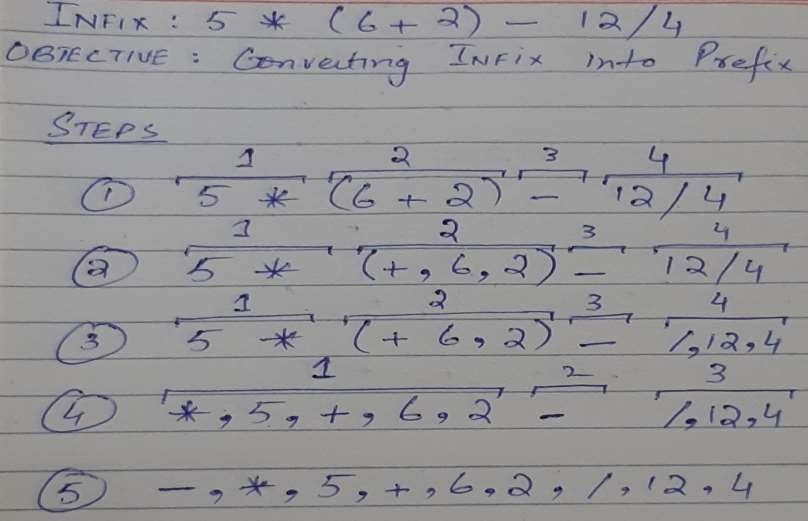 INFIX : 5 * (6 + 2) - 12/4
OBJECTIVE : Converting INFIX into Prefix
STEPS
1 2 3 4
① 5 * (6 + 2) - 12/4
1 2 3 4
② 5 * (+, 6, 2) - 12/4
1 2 3 4
③ 5 * (+ 6, 2) - /,12,4
1 2 3
④ *, 5, +, 6, 2 - /,12,4
⑤ -, *, 5, +, 6, 2, /, 12, 4